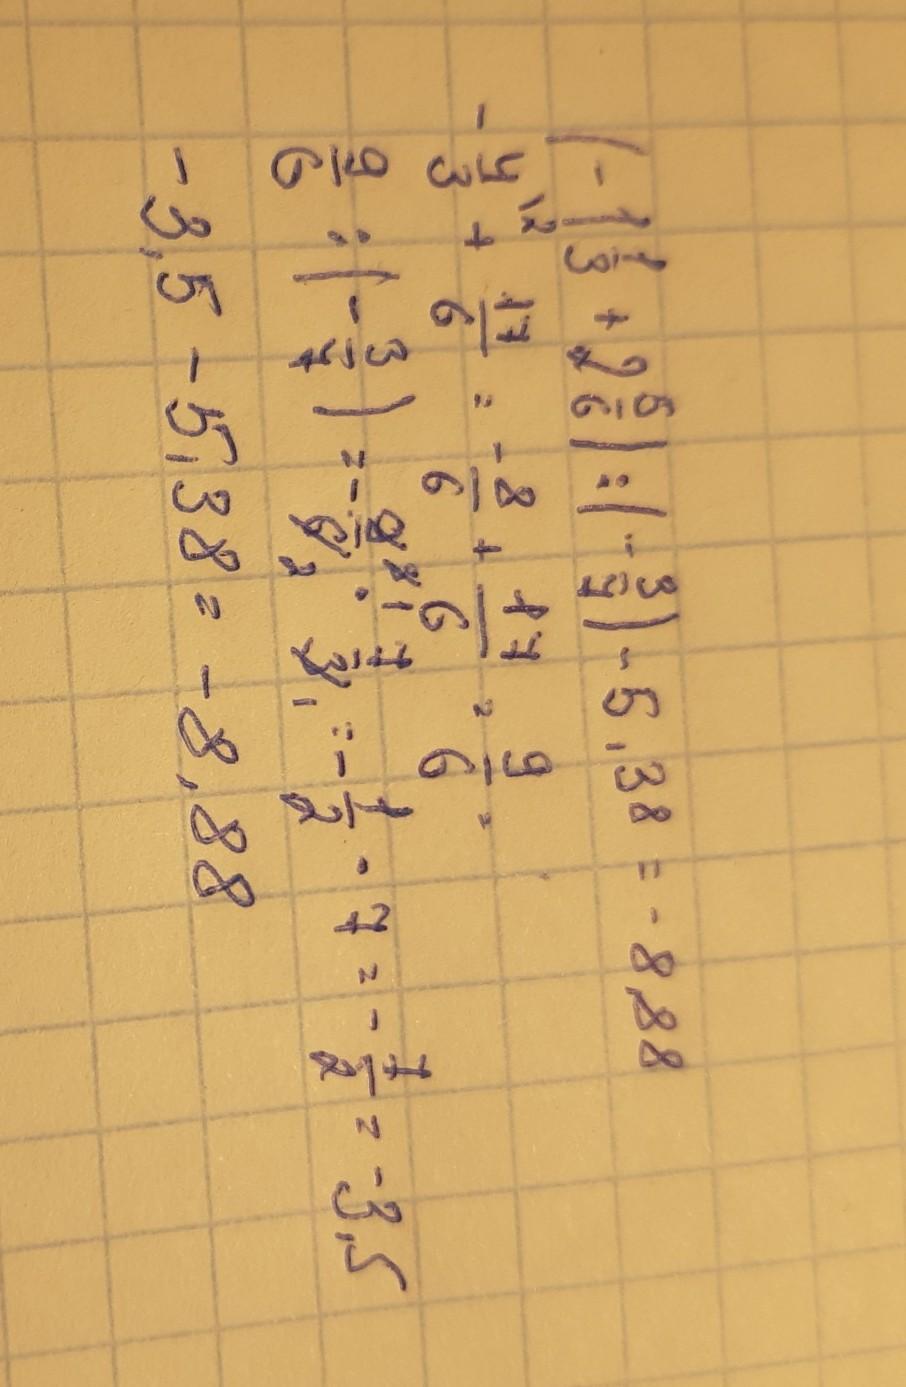 (-1 1/3 + 2 5/6) : (-3/7) - 5,38 = -8,88
-4/3 \2 + 17/6 = -8/6 + 17/6 = 9/6 =
9/6 : (-3/7) = -9/6 · 7/3 = -1/2 · 7 = -7/2 = -3,5
-3,5 - 5,38 = -8,88